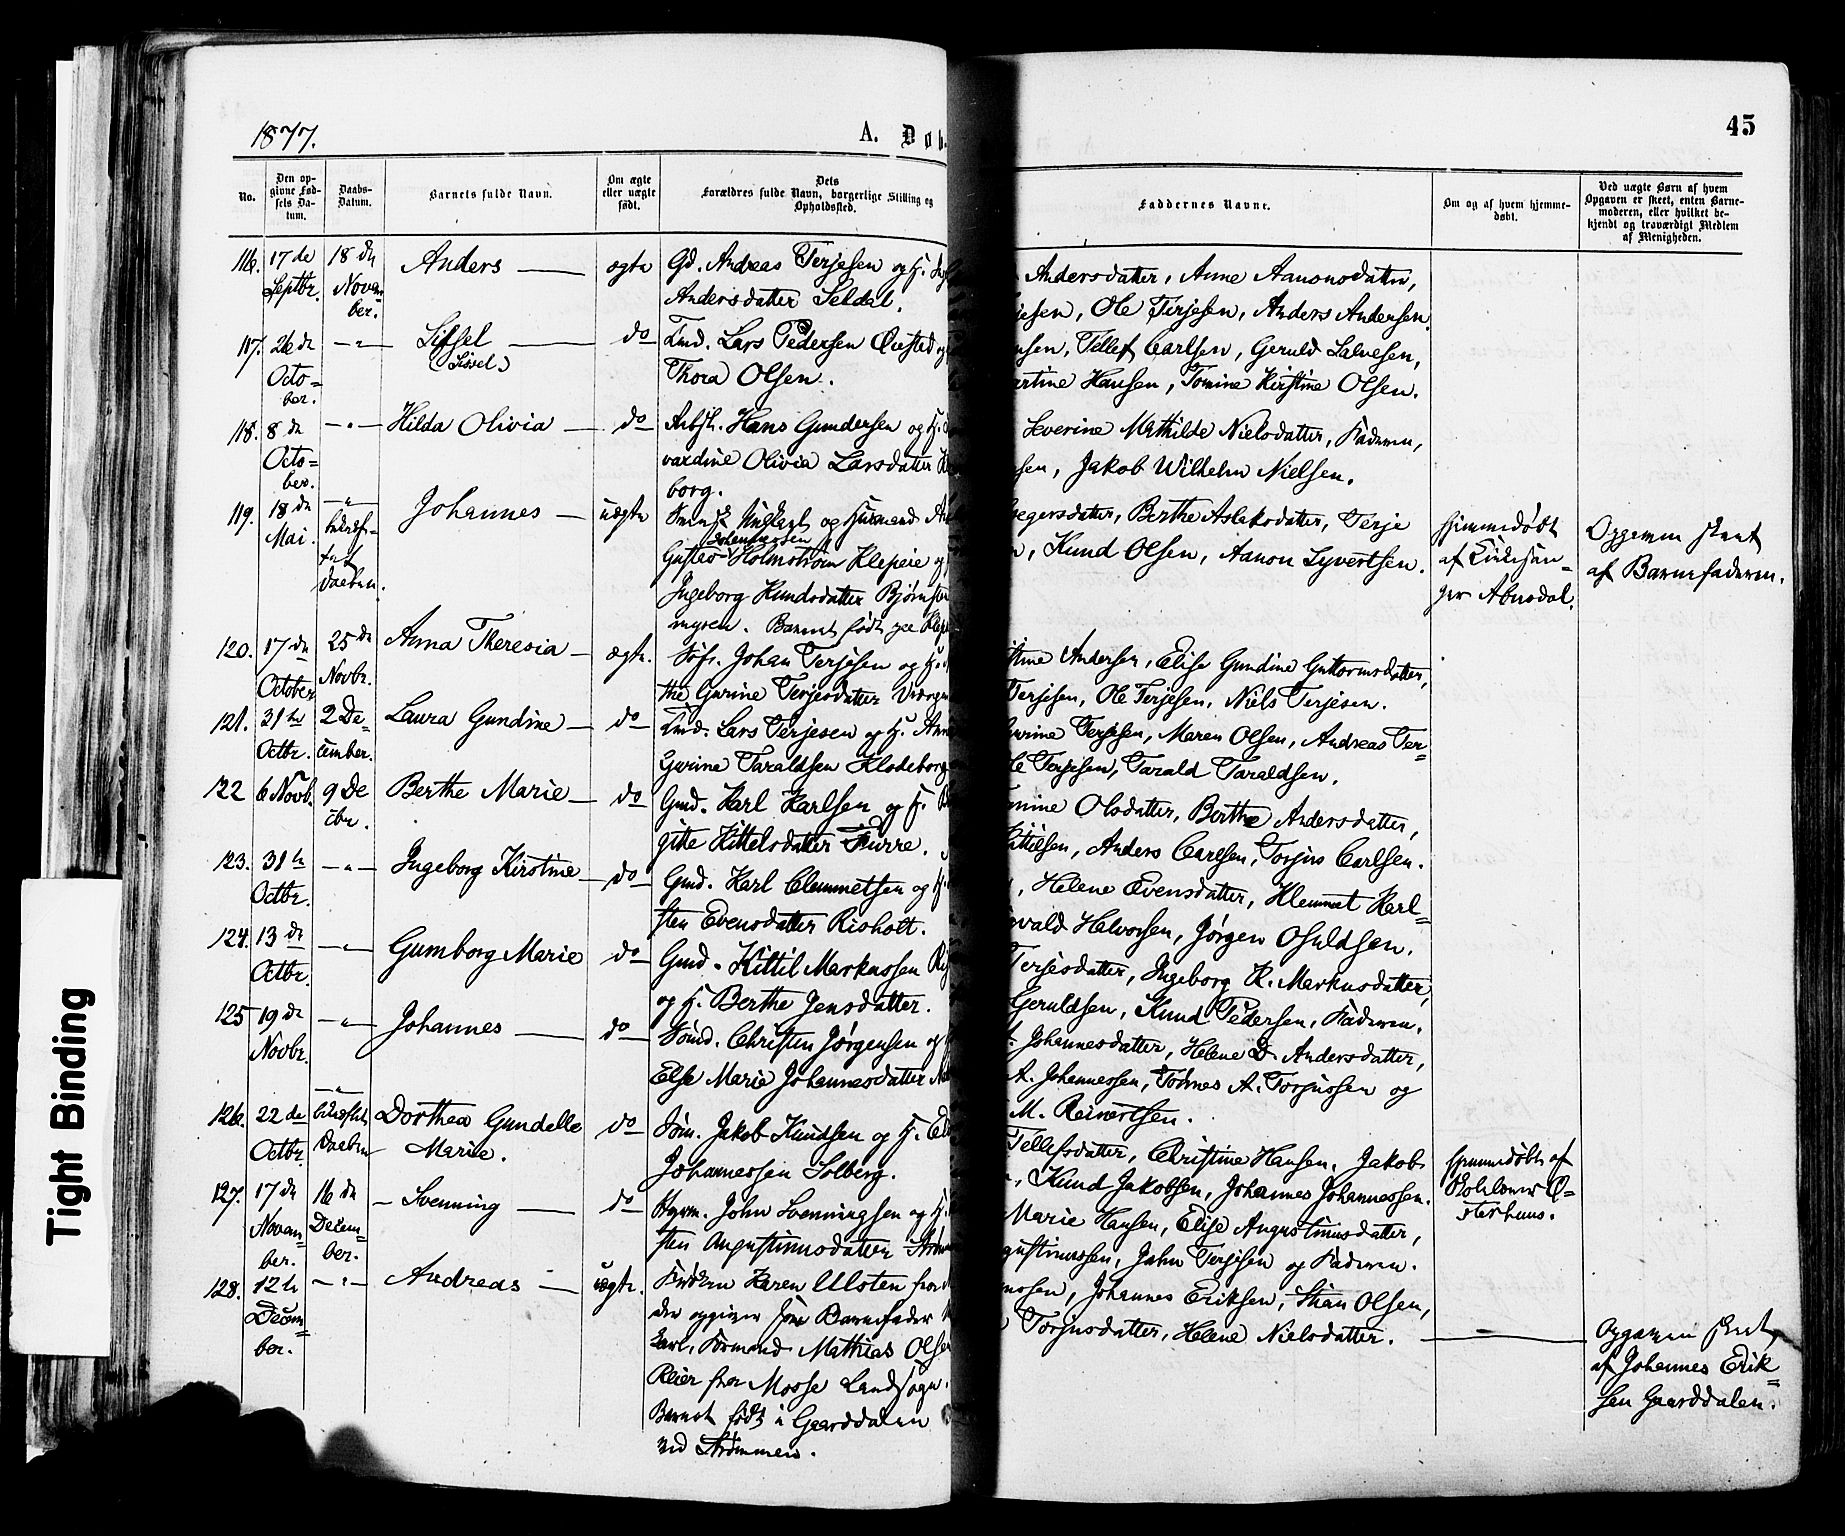 1877.
A. Døb
45
No.
Den op-
givne Fød-
sels Da-
tum.
Daabs-
Datum.
Barnets fulde Navn.
Om ægte
eller uægte
født.
Dets
Forældres fulde Navn, borgerlige Stilling og
Opholdssted.
Faddernes Navne.
Om og af hvem hjemme-
døbt.
Ved uægte Børn af hvem
Opgaven er skeet, enten Barne-
moderen, eller hvilket be-
kjendt og troværdigt Medlem
af Menigheden.
116. 17de Septbr. 18de Novem=ber. Anders — ægte
Gd. Andreas Terjesen og H.
Andersdatter Seldal.
Andersdatter, Anne Aanonsdatter,
jesen, Ole Terjesen, Anders Andersen.
117. 26de Octo=ber. —"— Sissel (Sisvel) — do
Lmd. Lars Pedersen Øvested og
Thora Olsen.
nsen, Tellef Carlsen, Geruld Salvesen,
artine Hansen, Tomine Kirstine Olsen.
118. 8de Octo=ber. —"— Hilda Olivia — do
Arbst. Hans Gundersen og H.
vardine Olivia Larsdatter
borg.
Severine Mathilde Nielsdatter, Faderen,
sen, Jakob Wilhelm Nielsen.
119. 18de Mai. —"— Daaben. Johannes — uægte
Svensk Ungkarl og
Gustav Johannessen Holmstrøm Klepeie og
Ingeborg Knudsdatter
myren. Barnet født paa
egersdatter, Berthe Aslaksdatter, Terje
n, Knud Olsen, Aanon Syvertsen.
Hjemmedøbt
af Kirkesan=
ger Abusdal.
Opgaven skeet
af Barnefaderen.
120. 17de October 25de Novbr. Anna Theresia — ægte.
Søfr. Johan Terjesen og H.
the Gurine Terjesdatter
stine Andersen, Elise Gundine Guttormsdatter,
Terjesen, Ole Terjesen, Niels Terjesen.
121. 31te Octbr. 2 De=cember. Laura Gundine — do
Lmd. Lars Terjesen og H. Anne
Gurine Taraldsen Klodeborg
urine Terjesen, Maren Olsen, Andreas Ter=
Ole Terjesen, Tarald Taraldsen.
122 6 Novb. 9 De cbr. Berthe Marie — do
Gmd. Karl Karlsen og H.
gitte Kittelsdatter Furre.
mine Olsdatter, Berthe Andersdatter,
Kittilsen, Anders Carlsen, Torjus Carlsen.
123. 31te Octbr. —"— Ingeborg Kirstine — do
Gmd. Karl Clemmetsen og H.
sten Evensdatter Risholt.
, Helene Evensdatter, Klemmet Karl=
vald Halvorsen, Jørgen Osuldsen.
124. 13de Octbr. —"— Gumborg Marie do
Gmd. Kittil Markussen
og H. Berthe Jensdatter.
Terjesdatter, Ingeborg K. Markusdatter,
Geruldsen, Knud Pedersen, Faderen.
125 19de Novbr. —"— Johannes — do
Sømd. Christen Jørgensen og
Else Marie Johannesdatter
Johannesdatter, Helene D. Andersdatter,
A. Johannessen, Tønnes A. Torjussen og
M. Reinertsen.
126. 22de Octbr. —"— Daaben Dorthea Gundelle
Marie. do
Søm. Jakob Knudsen og H.
Johannessen Solberg.
Tellefsdatter, Christine Hansen, Jakob
, Knud Jakobsen, Johannes Johannessen.
Hjemmedøbt af
Ø=
sterhuus.
127. 17de Novem=ber. 16de Decem=ber. Svenning — do
John Svenningsen og H.
sten Augustinusdatter
Marie Hansen, Elise Augustinusdatter,
gustinussen, John Terjesen og Faderen.
128. 12te Decem=ber. —"— Andreas — uægte.
Karen Ulsten fra
der opgiver som Barnefader
karl, Formand Mathias Olsen
Reier fra Mosse Landsogn.
Barnet født i Gaarddalen
ved Strømmen.
nssen, Johannes Eriksen, Stian Olsen,
Torjusdatter, Helene Nielsdatter. —
Opgaven skeet
af Johannes Erik=
sen Gaarddalen.
Tight Binding